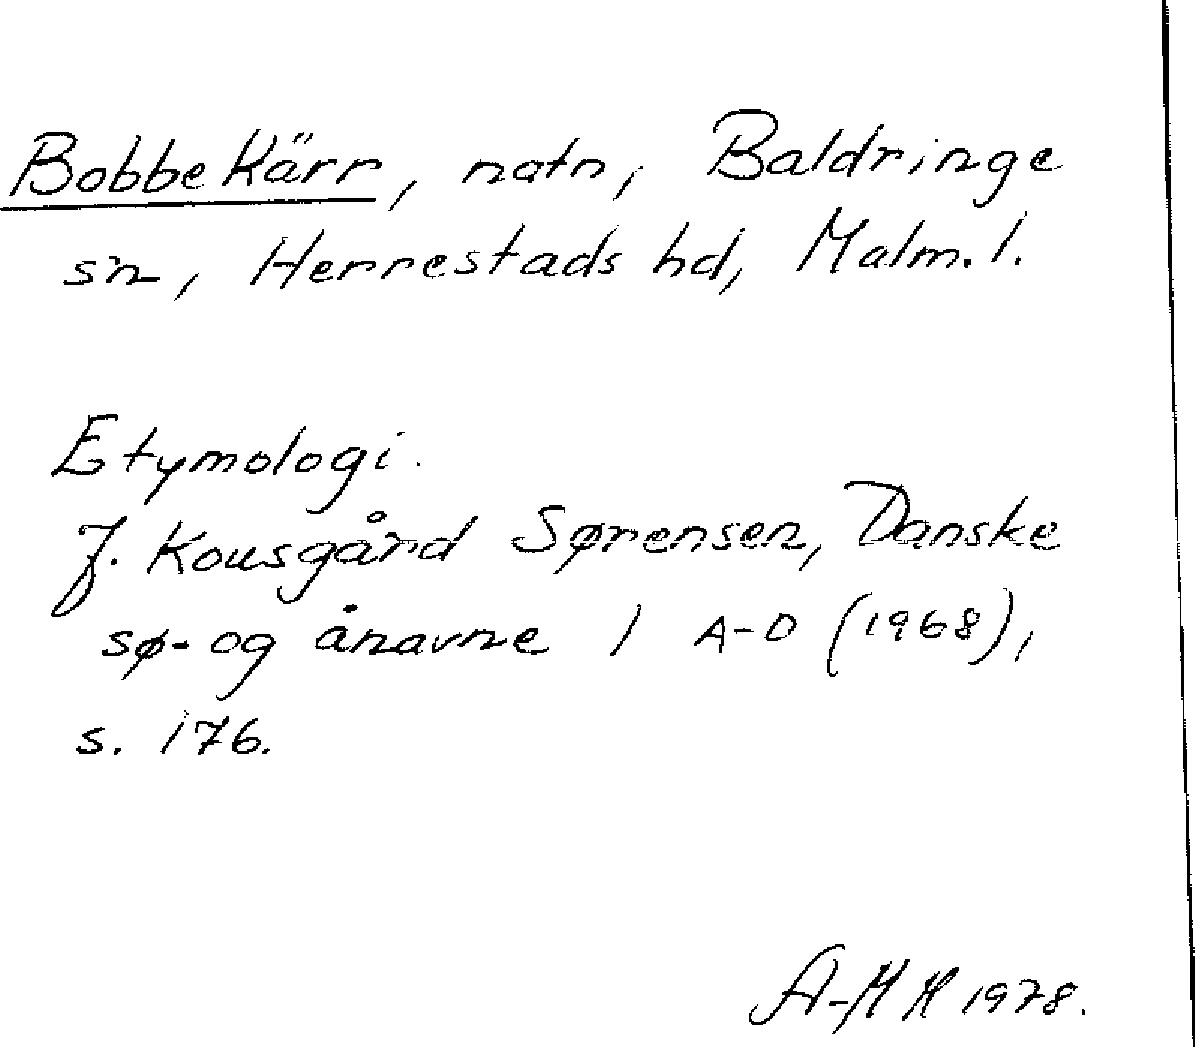 Bobbe Kärr, natn, Baldringe
sn, Herrestads hd, Malm. l.
Etymologi.
J. Kousgård Sørensen, Danske
sø- og ånavne 1 A-D (1968),
s. 176.
A-MH 1978.